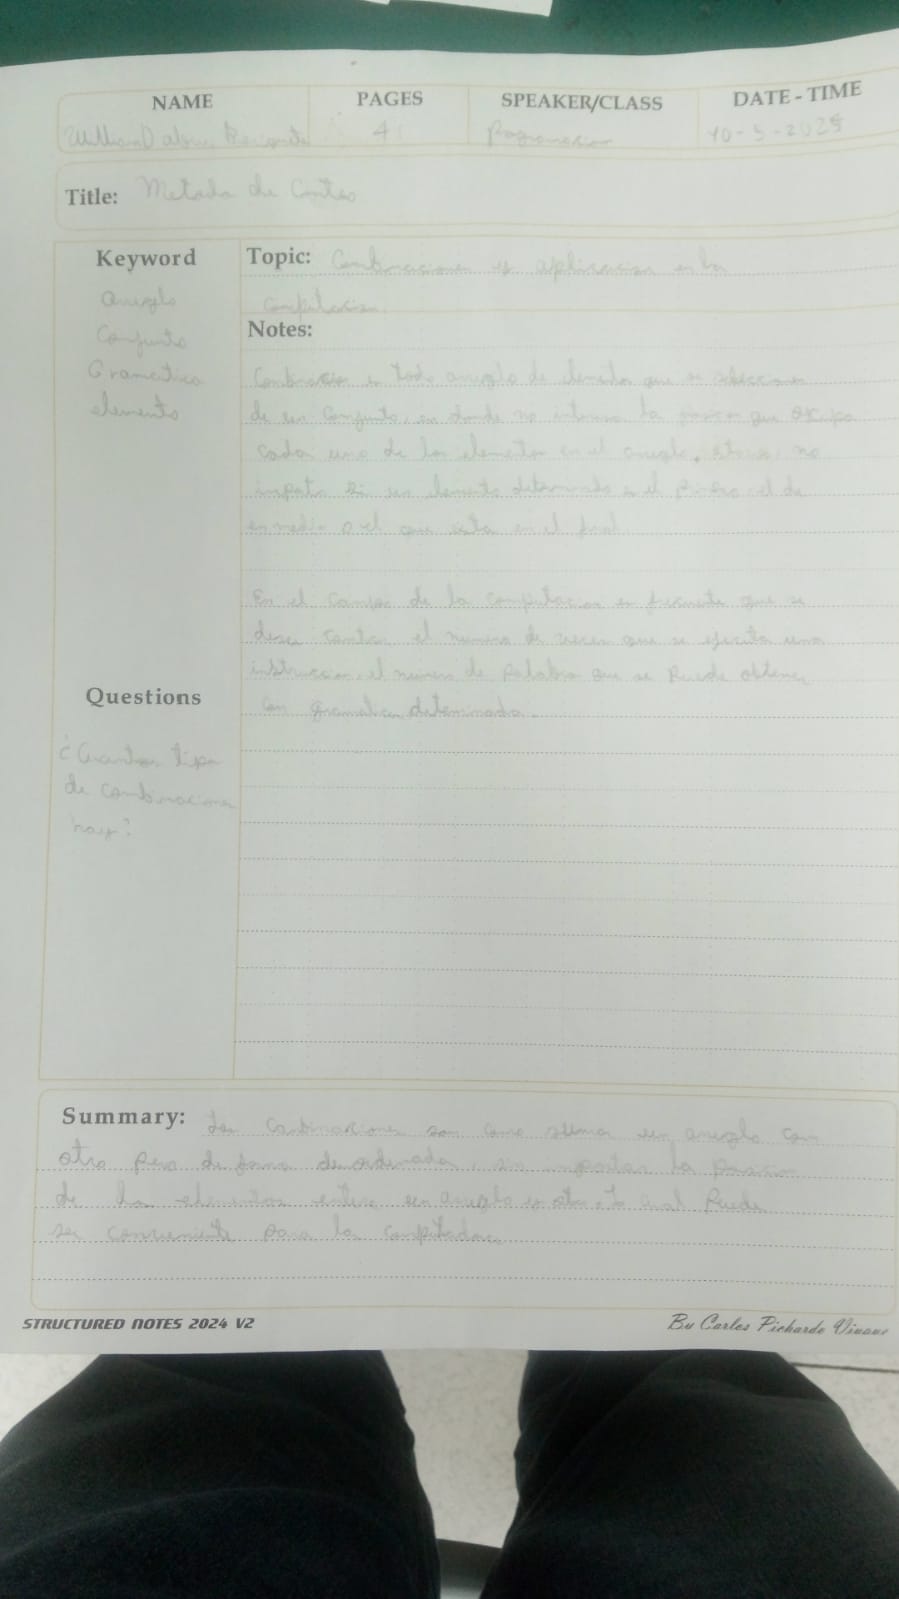 NAME PAGES SPEAKER/CLASS DATE - TIME
4 10-5-2025
Title: Metodo de Conteo
Keyword
arreglo
Conjunto
Gramatica
elemento
Topic: Combinaciones y aplicacion en la
computacion
Notes:
Combinacion es todo arreglo de elementos que se seleccionan
de un conjunto, en donde no interesa la posicion que ocupa
cada uno de los elementos en el arreglo, no
importa si un elemento determinado es el primero, el de
en medio o el que esta en el final
En el campo de la computacion es frecuente que se
desee contar el numero de veces que se ejecuta una
instruccion, el numero de palabras que se Puede obtener
con gramatica determinada.
Questions
¿Cuantos tipos
de combinaciones
hay?
Summary: las Combinaciones son como sumar un arreglo con
otro pero de forma desordenada, sin importar la posicion
de los elementos un arreglo y otro, Lo cual Puede
ser conveniente para la computadora
STRUCTURED NOTES 2024 V2
By Carlos Pichardo Viuque